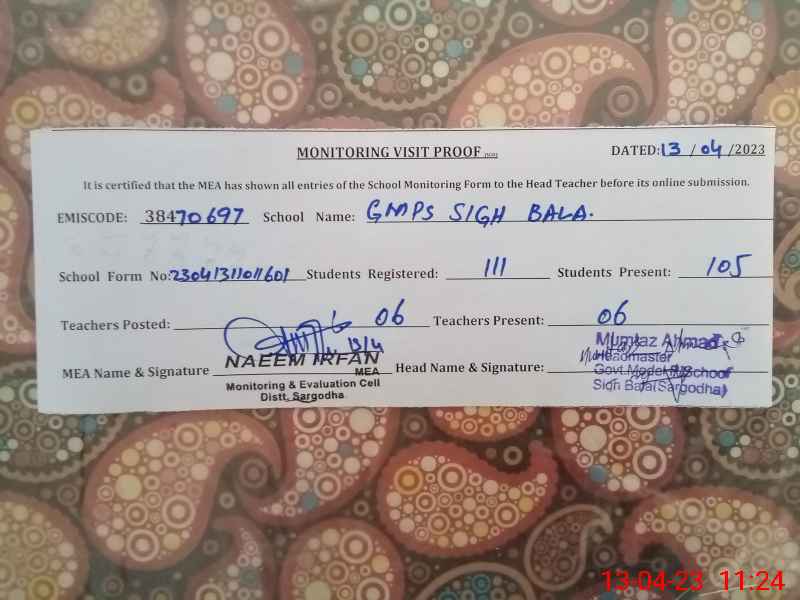 MONITORING VISIT PROOF
DATED: 13 / 04 /2023
It is certified that the MEA has shown all entries of the School Monitoring Form to the Head Teacher before its online submission.
EMISCODE: 38470697 School Name: GMPS SIGH BALA.
School Form No: 2304131101601 Students Registered: 111 Students Present: 105
Teachers Posted: 06 Teachers Present: 06
13/4
MEA Name & Signature NAEEM IRFAN Head Name & Signature: Mumtaz Ahmad
MEA Headmaster
Monitoring & Evaluation Cell Govt. Model School
Distt. Sargodha Sigh Bala(Sargodha)
13-04-23 11:24